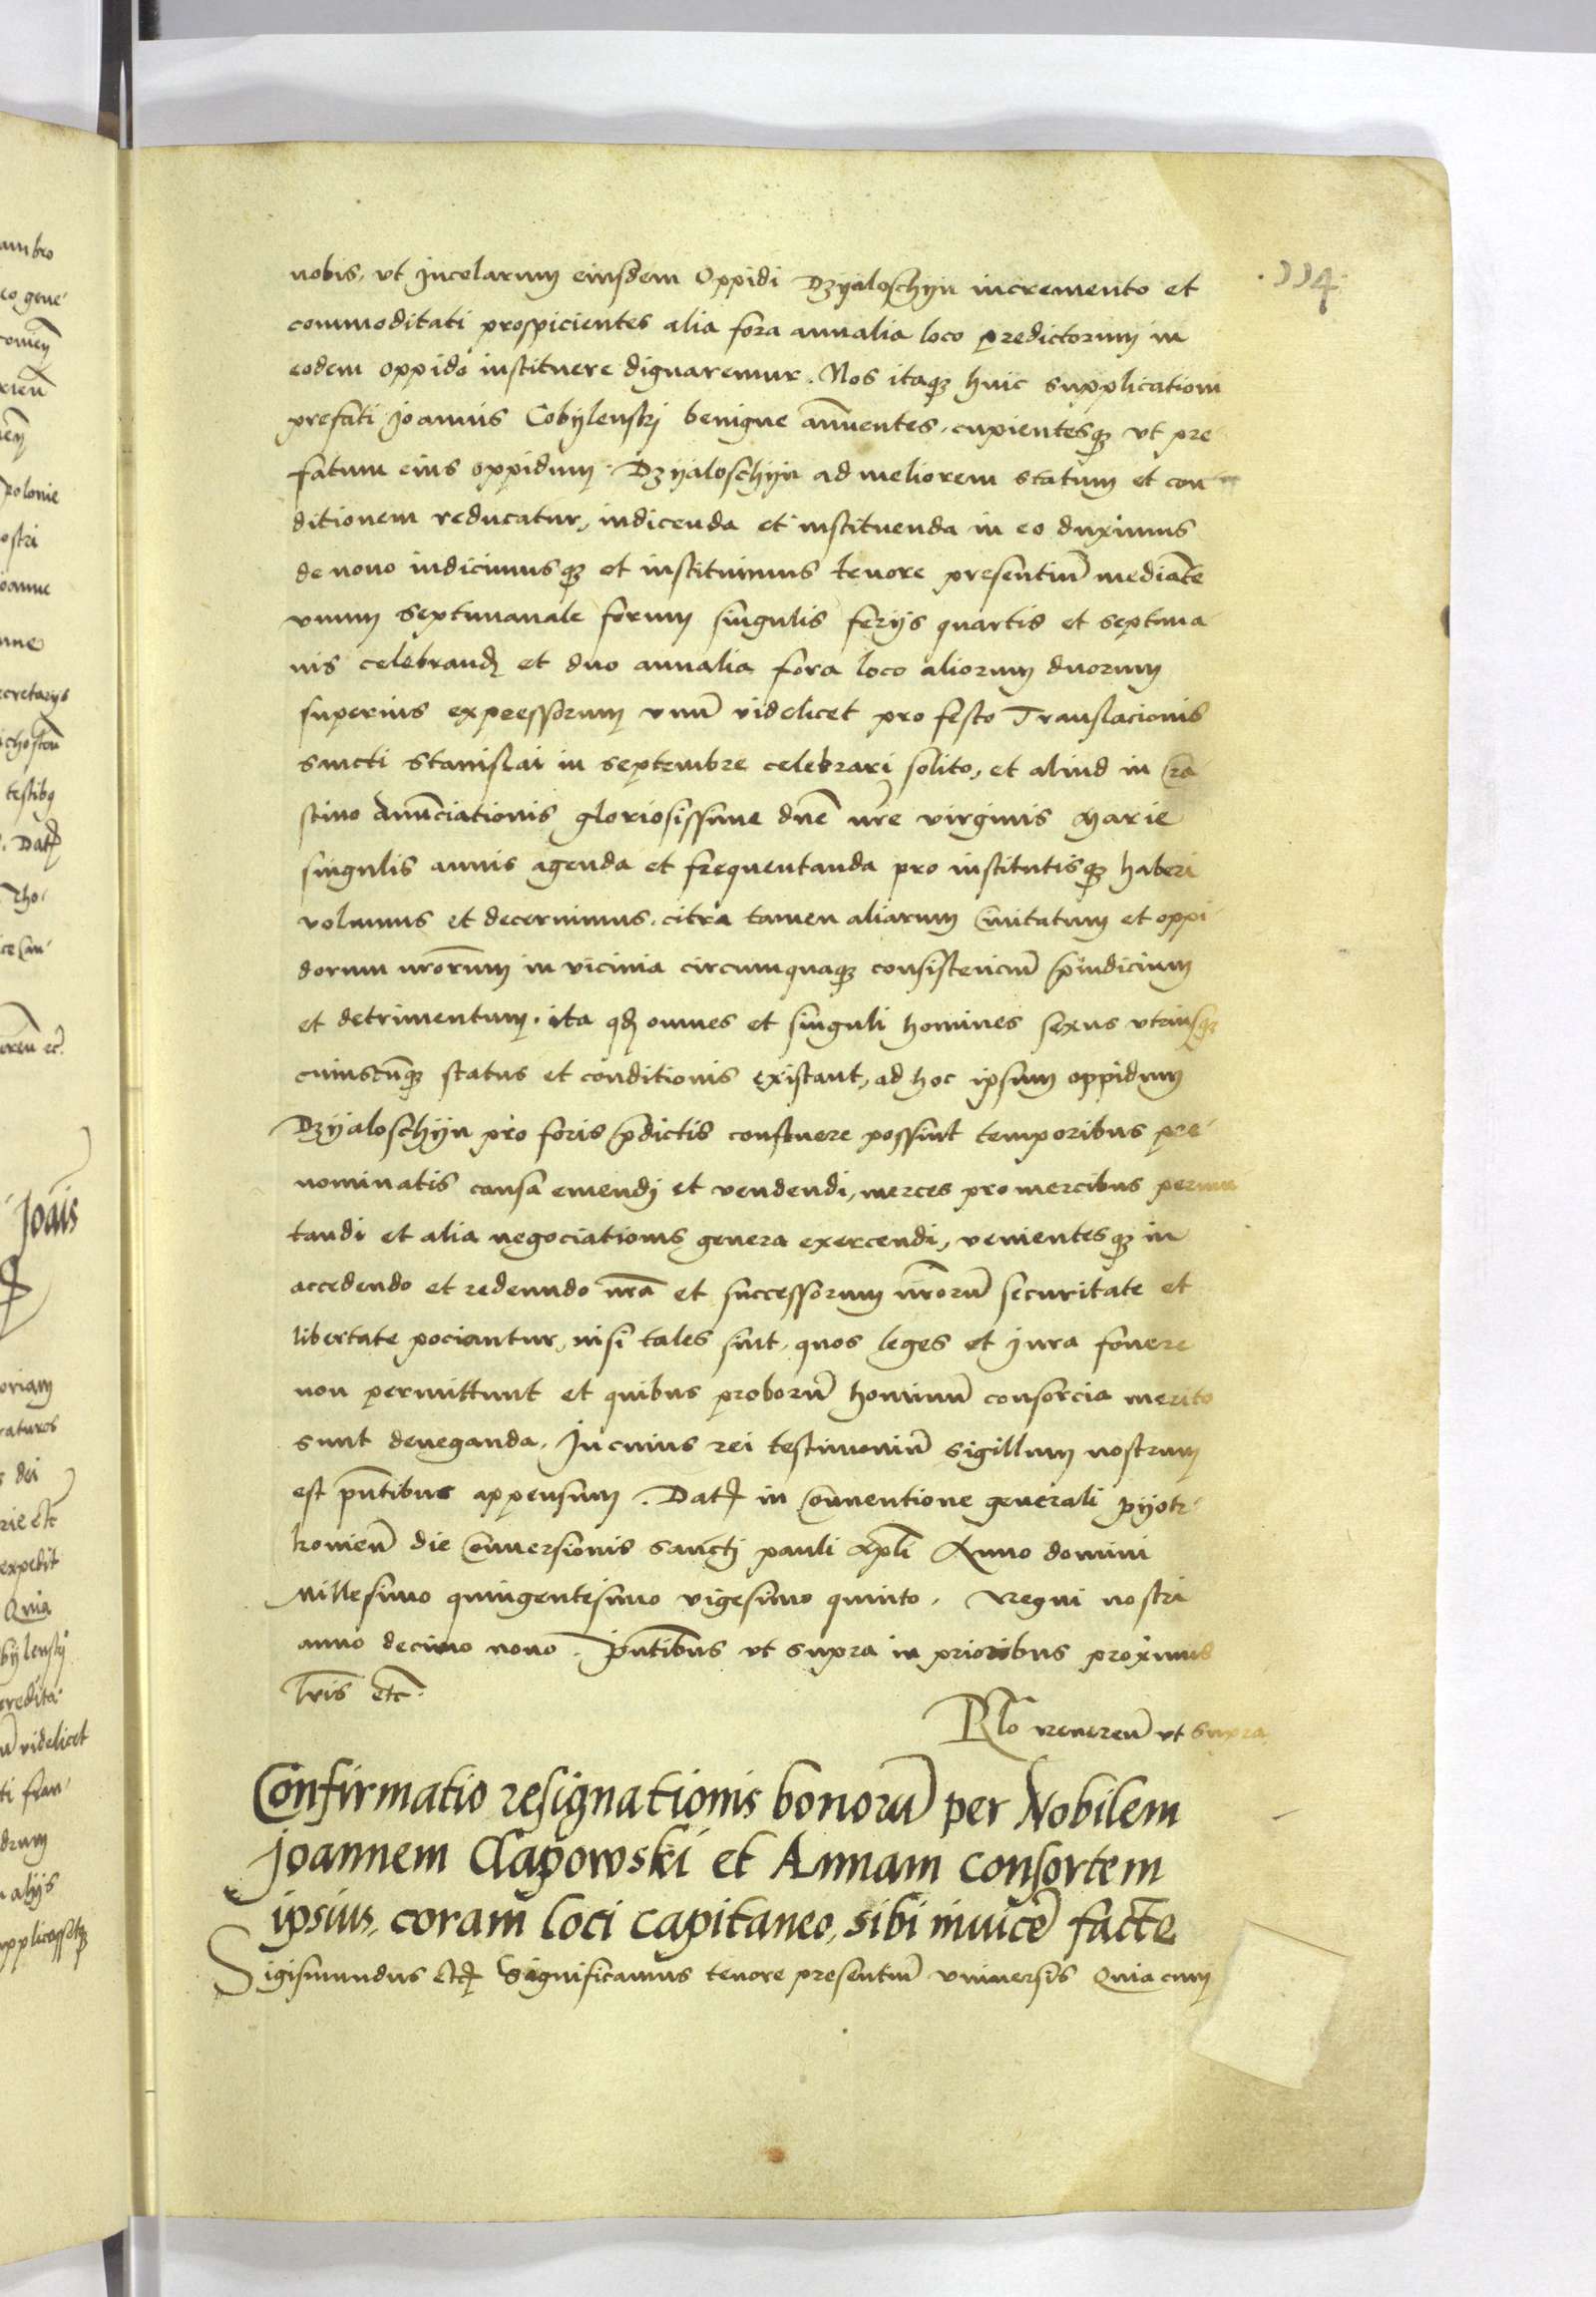 .114.
nobis, vt Jncolarum eiusdem Oppidi Dzyaloschyn incremento et
commoditati prospicientes alia fora annalia loco predictorum in
eodem oppido instituere dignaremur. Nos itaq3 huic supplicationi
prefati Joannis Cobylenskj benigne annuentes, cupientesq3 vt pre
fatum eius oppidum Dzyaloschyn ad meliorem statum et con
ditionem reducatur, indicenda et instituenda in eo duximus
de nouo indicimusq3 et instituimus tenore presentiū mediāte
vnum septimanale forum singulis ferijs quartis et septima
nis celebrand et duo annalia fora loco aliorum duorum
superius expressorum vnū videlicet pro festo Translacionis
sancti Stanislai in septembre celebrari solito, et aliud in Cra
stino Anūciationis gloriosissime dnē nrē virginis Marie
singulis annis agenda et frequentanda pro institutisq3 haberi
volumus et decernimus, citra tamen aliarum Ciuitatum et oppi
dorum nrōrum in vicinia circumquaq3 consistenciū p̄iudicium
et detrimentum, ita qd omnes et singuli homines sexus vtriusq3
cuiuscūq3 status et conditionis existant, ad hoc ipsum oppidum
Dzyaloschyn pro foris p̄dictis confluere possint temporibus pre
nominatis causa emendj et vendendi, merces pro mercibus permu
tandi et alia negociationis genera exercendi, venientesq3 in
accedendo et redeundo nrā et successorum nrōrū securitate et
libertate pociantur, nisi tales sint, quos leges et jura fouere
non permittunt et quibus proborū hominū consorcia merito
sunt deneganda. Jn cuius rei testimoniū sigillum nostrum
est pn̄tibus appensum. Dat in Conuentione generali pyotr
kouien̄ die Conuersionis sanctj pauli Apl̄i Anno domini
Millesimo quingentesimo vigesimo quinto. Regni nostri
anno decimo nono. Pn̄tibus vt supra in prioribus proximis
lr̄is etc̄.
Rlō reueren̄ vt supra
Confirmatio resignationis bonorū per Nobilem
Joannem Clapowski et Annam consortem
ipsius, coram loci capitaneo, sibi inuicē facte
Sigismundus Significamus tenore presentiū vniuersis Quia cum